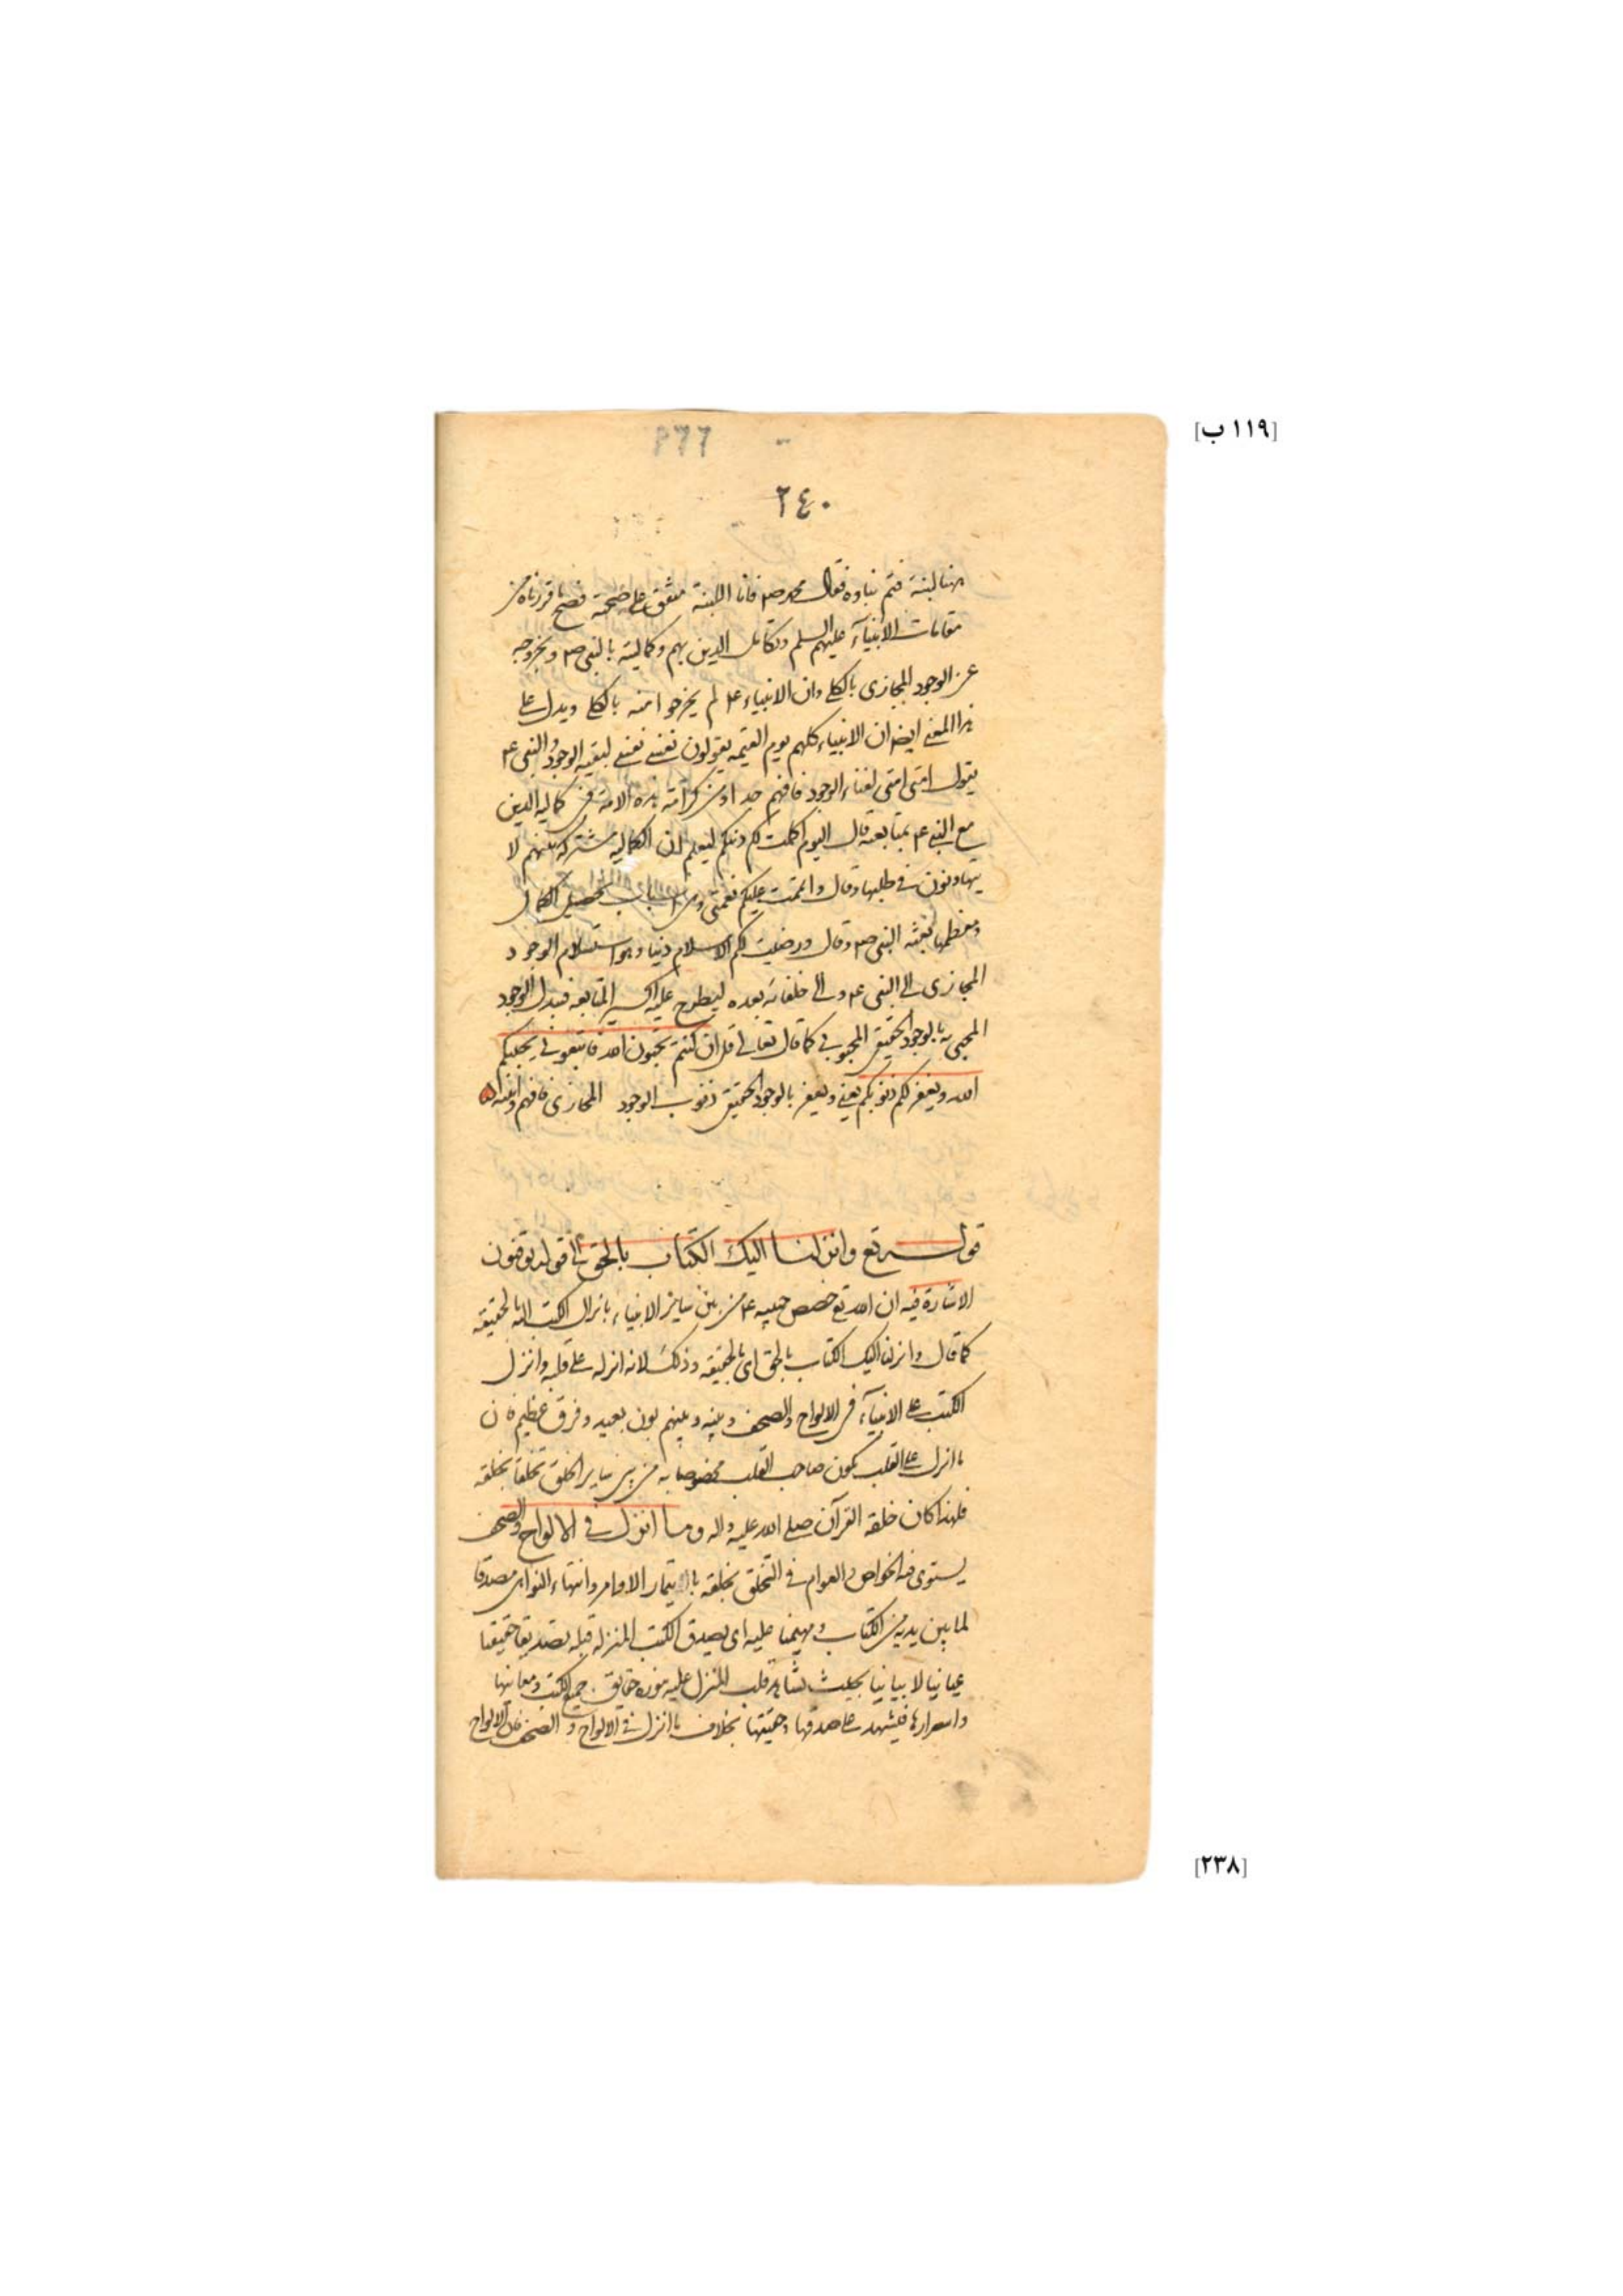 [١١٩ ب]
٢٤٠
هنا لبنة فتم بناؤه فقال محمد صم فانا اللبنة متفق على صحته فصح ما قررناه من
مقامات الانبيآء عليهم السلم وتكامل الدين بهم وكماليته بالنبي صم وبخروجه
عن الوجود المجازى بالكلى وان الانبياء عم لم يخرجوا منه بالكلى ويدل على
هذا المعنى ايضا ان الانبياء كلهم يوم القيمه يقولون نفسى نفسى لبقيه الوجود والنبي عم
يقول امتى امتى لفناء الوجود فافهم جدا ومن كرامة هذه الامة فى كماليه الدين
مع النبي عم بمتابعته قال اليوم اكملت لكم دينكم ليعلم ان الكماليه مشتركه بينهم لا
يتهاونون فى طلبها وقال واتممت عليكم نعمتى وهى اسباب تحصيل الكمال
ومعظمها بعثه النبي صم وقال ورضيت لكم الاسلام دينا وهو استسلام الوجود
المجازى الى النبي عم والى خلفائه بعده ليطرح عليه اكسير المتابعه فيبدل الوجود
المحبى به بالوجود الحقيقى المحبوبى كما قال تعالى قل ان كنتم تحبون الله فاتبعونى يحببكم
الله ويغفر لكم ذنوبكم يعنى ويغفر بالوجود الحقيقى ذنوب الوجود المجازى فافهم وانتبه
قوله تع وانزلنا اليك الكتاب بالحق الى قوله يوقنون
الاشارة فيه ان الله تع خصص حبيبه عم من بين ساير الانبياء بانزال الكتب اليه بالحقيقه
كما قال وانزلنا اليك الكتاب بالحق اى بالحقيقه وذلك لانه انزله على قلبه وانزل
الكتب على الانبيآء فى الالواح والصحف وبينه وبينهم بون بعيد وفرق عظيم فان
ما انزل على القلب يكون صاحب القلب مخصوصا به من بين ساير الخلق تخلقا بخلقه
فلهذا كان خلقه القرآن صلى الله عليه واله وما انزل فى الالواح والصحف
يستوى فيه الخواص والعوام فى التخلق بخلقه بايتمار الاوامر وانتهاء النواهى مصدقا
لما بين يديه من الكتاب ومهيمنا عليه اى يصدق الكتب المنزله قبله تصديقا حقيقيا
عيانيا لا بيانيا بحيث يشاهد قلب المنزل عليه بنوره حقايق جميع الكتب ومعانيها
واسرارها فيشهد على صدقها وحقيتها بخلاف ما انزل فى الالواح والصحف فان الالواح
[٢٣٨]